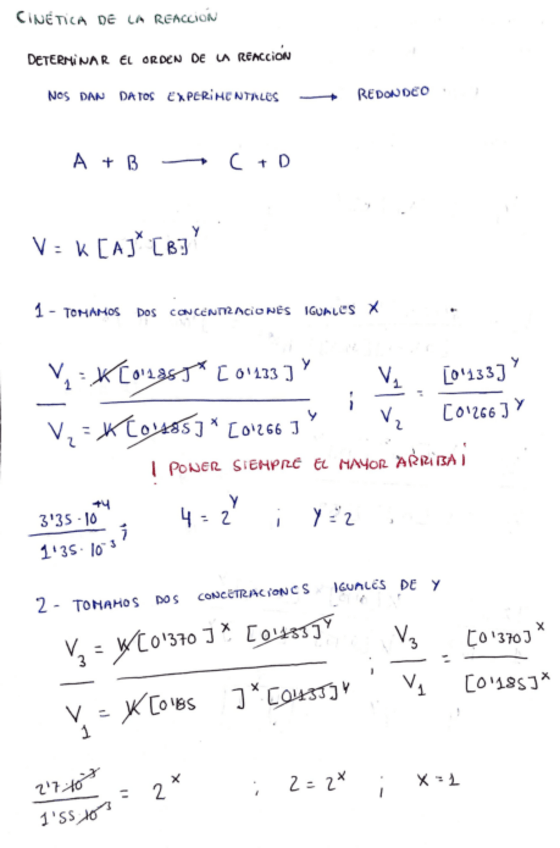 CINÉTICA DE LA REACCIÓN
DETERMINAR EL ORDEN DE LA REACCIÓN
NOS DAN DATOS EXPERIMENTALES ⟶ REDONDEO
A + B ⟶ C + D
V = K [A]^x [B]^y
1 - TOMAMOS DOS CONCENTRACIONES IGUALES X
V₁ = K [0'185]^x [0'133]^y / V₂ = K [0'185]^x [0'266]^y ; V₁ / V₂ = [0'133]^y / [0'266]^y
¡ PONER SIEMPRE EL MAYOR ARRIBA ¡
3'35 · 10^+4 / 1'35 · 10^-3 ; 4 = 2^y ; Y = 2
2 - TOMAMOS DOS CONCETRACIONES IGUALES DE Y
V₃ = K [0'370]^x [0'133]^y / V₁ = K [0'185 ]^x [0'133]^y ; V₃ / V₁ = [0'370]^x / [0'185]^x
2'7·10^-3 / 1'55·10^-3 = 2^x ; 2 = 2^x ; x = 1